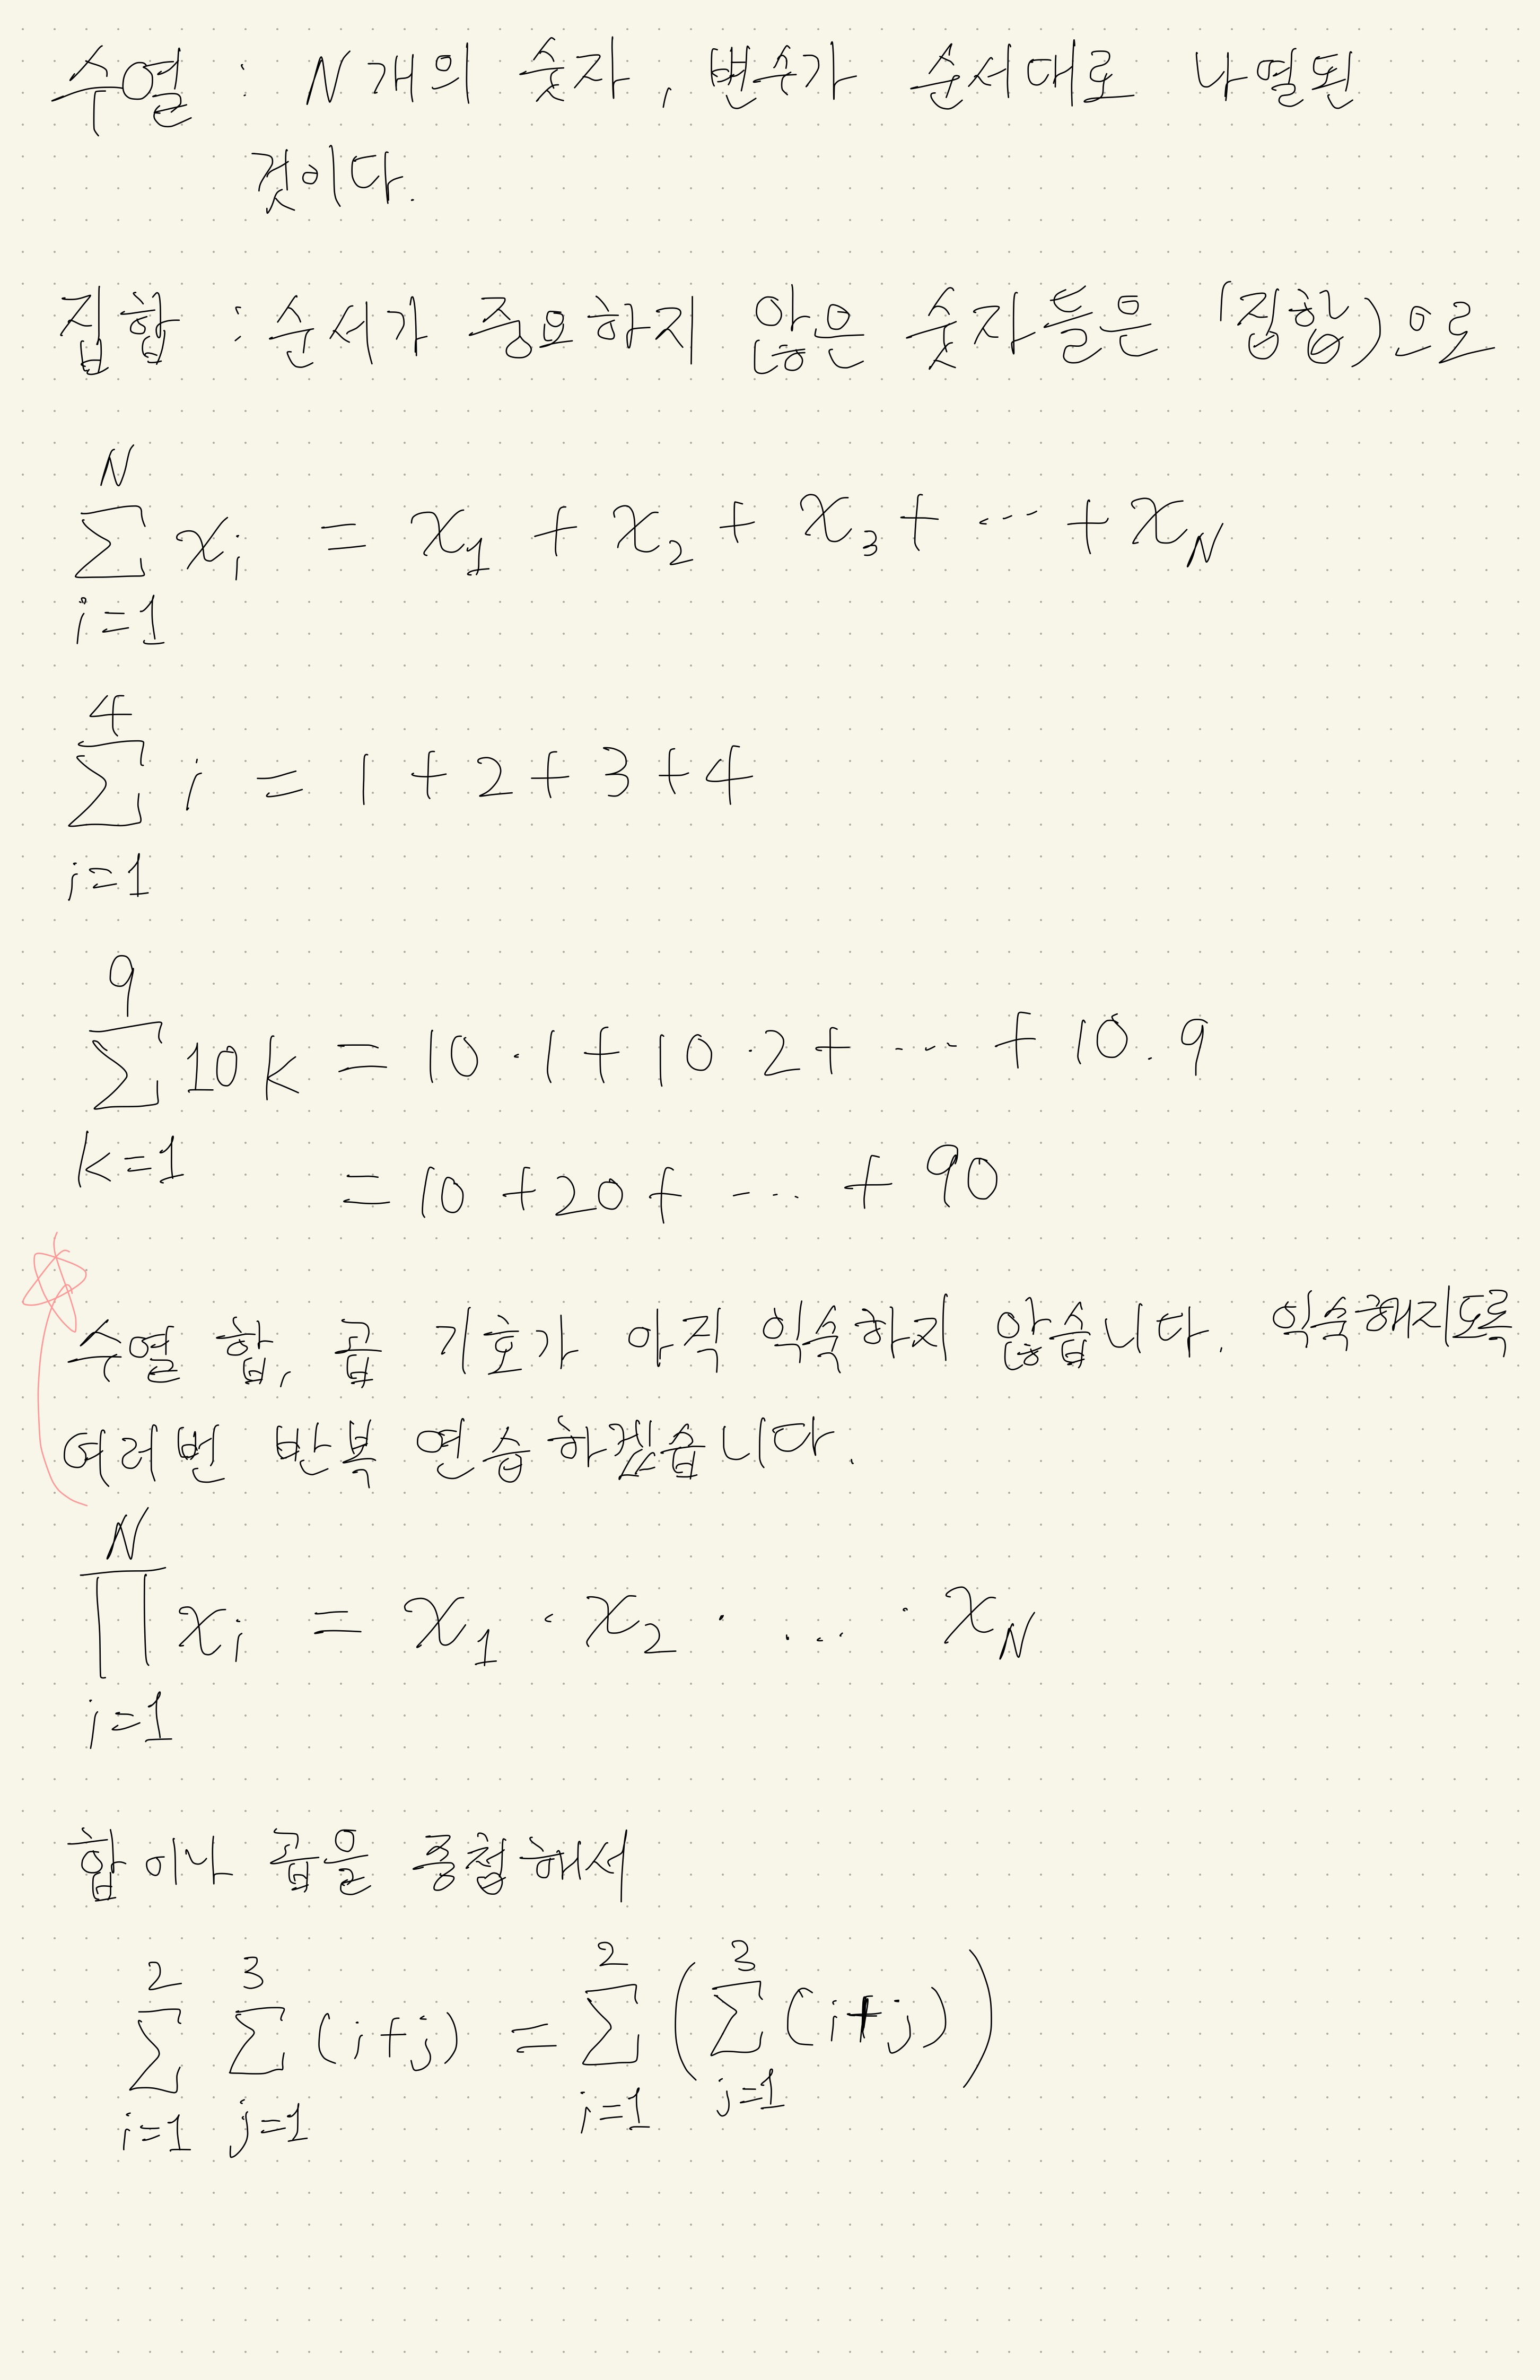 수열 : N개의 숫자, 변수가 순서대로 나열된
것이다.
집합 : 순서가 중요하지 않은 숫자들은 (집합)으로
N
∑ xᵢ = x₁ + x₂ + x₃ + ⋯ + x_N
i=1
4
∑ i = 1 + 2 + 3 + 4
i=1
9
∑ 10k = 10·1 + 10·2 + ⋯ + 10.9
k=1
= 10 + 20 + ⋯ + 90
수열 합, 곱 기호가 아직 익숙하지 않습니다. 익숙해지도록
여러번 반복 연습하겠습니다.
N
∏ xᵢ = x₁ · x₂ · … · x_N
i=1
합이나 곱을 중첩해서
2 3 2 3
∑ ∑ (i+j) = ∑ (∑ (i+j))
i=1 j=1 i=1 j=1